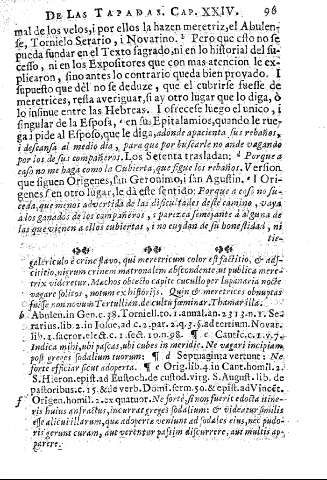 DE LAS TAPADAS. CAP. XXIV. 96
mal de los velos, i por ellos la hazen meretriz, el Abulen-
se, Tornielo Serario, i Novarino. b Pero que esto no se
pueda fundar en el Texto sagrado, ni en lo historial del su-
cesso, ni en los Expositores que con mas atencion le ex-
plicaron, sino antes lo contrario queda bien provado. I
supuesto que dél no se deduze, que el cubrirse fuesse de
meretrices, resta averiguar, si ay otro lugar que lo diga, ò
lo insinue entre las Hebreas. I ofrecese luego el unico, i
singular de la Esposa, c en sus Epitalamios, quando le rue-
ga i pide al Esposo, que le diga, adonde apacienta sus rebaños,
i descansa al medio dia, para que por buscarle no ande vagando
por los de sus compañeros. Los Setenta trasladan: d Porque a
caso no me haga como la Cubierta, que sigue los rebaños. Version
que siguen Origenes, san Geronimo, i san Agustin. e I Ori-
genes f en otro lugar, le dà este sentido: Porque a caso no su-
ceda, que menos advertida de las dificultades deste camino, vaya
à los ganados de los compañeros, i parezca semejante à alguna de
las que vienen a ellos cubiertas, i no cuydan de su honestidad, ni
tie-
galericulo è crine flavo, qui meretricum color est factitio, & ads-
cititio, nigrum crinem matronalem abscondente, ut publica mere-
trix videretur. Machos obtecto capite cucullo per lupanaria nocte
vagare solitos, notum ex historijs. Quin & meretrices obnuptas
fuisse non novum Tertullian. de cultu fœminar. Thamar illa.
b Abulen. in Gen. c. 38. Torniell. to. 1. annal. an. 2313. n. 1. Se-
rarius. lib. 2. in Iosue, ad c. 2. par. 2. q. 3. & ad eertium. Novar.
lib. 4. sacror. elect. c. 1. sect. 1. n. 98. ¶ c Cantic. c. 1. v. 7.
Indica mihi, ubi pascas, ubi cubes in meridie. Ne vagari incipiam
post greges sodalium tuorum: ¶ d Septuaginta vertunt: Ne
forte efficiar sicut adoperta. ¶ e Orig. lib. 4. in Cant. homil. 2.
S. Hieron. epist. ad Eustoch. de custod. virg. S. August. lib. de
pastoribus. c. 15. & de verb. Domi. serm. 50. & epist. ad Vincẽt.
f Origen. homil. 2. ex quatuor. Ne fortè, si non fuerit edocta itine-
ris huius anfractus, incurrat greges sodalium: & videatur similis
esse alicui illarum, quæ adoperta veniunt ad sodales eius, nec pudo-
ris gerunt curam, aut verentur passim discurrere, aut multis ap-
parere.